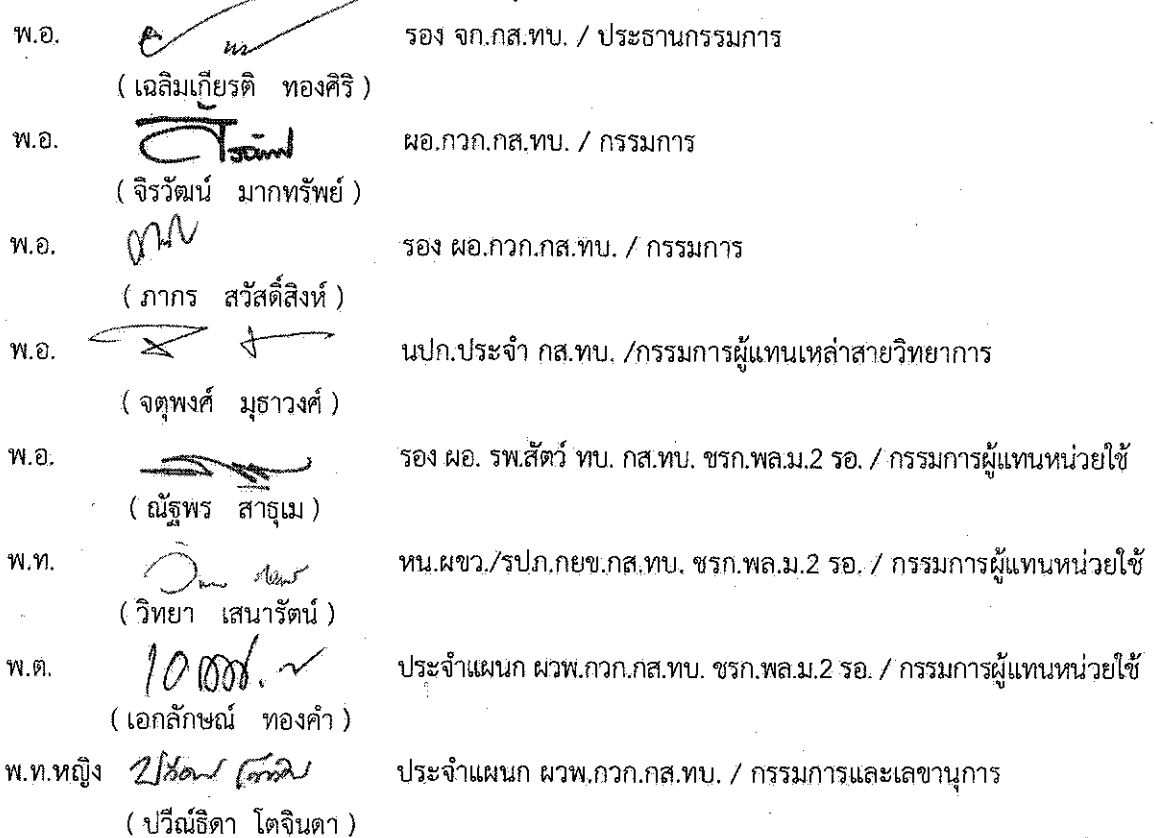 พ.อ. รอง จก.กส.ทบ. / ประธานกรรมการ
( เฉลิมเกียรติ ทองศิริ )
พ.อ. ผอ.กวก.กส.ทบ. / กรรมการ
( จิรวัฒน์ มากทรัพย์ )
พ.อ. รอง ผอ.กวก.กส.ทบ. / กรรมการ
( ภากร สวัสดิ์สิงห์ )
พ.อ. นปก.ประจำ กส.ทบ. /กรรมการผู้แทนเหล่าสายวิทยาการ
( จตุพงศ์ มุธาวงศ์ )
พ.อ. รอง ผอ. รพ.สัตว์ ทบ. กส.ทบ. ชรก.พล.ม.2 รอ. / กรรมการผู้แทนหน่วยใช้
( ณัฐพร สาธุเม )
พ.ท. หน.ผขว./รปภ.กยข.กส.ทบ. ชรก.พล.ม.2 รอ. / กรรมการผู้แทนหน่วยใช้
( วิทยา เสนารัตน์ )
พ.ต. ประจำแผนก ผวพ.กวก.กส.ทบ. ชรก.พล.ม.2 รอ. / กรรมการผู้แทนหน่วยใช้
( เอกลักษณ์ ทองคำ )
พ.ท.หญิง ประจำแผนก ผวพ.กวก.กส.ทบ. / กรรมการและเลขานุการ
( ปวีณ์ธิดา โตจินดา )